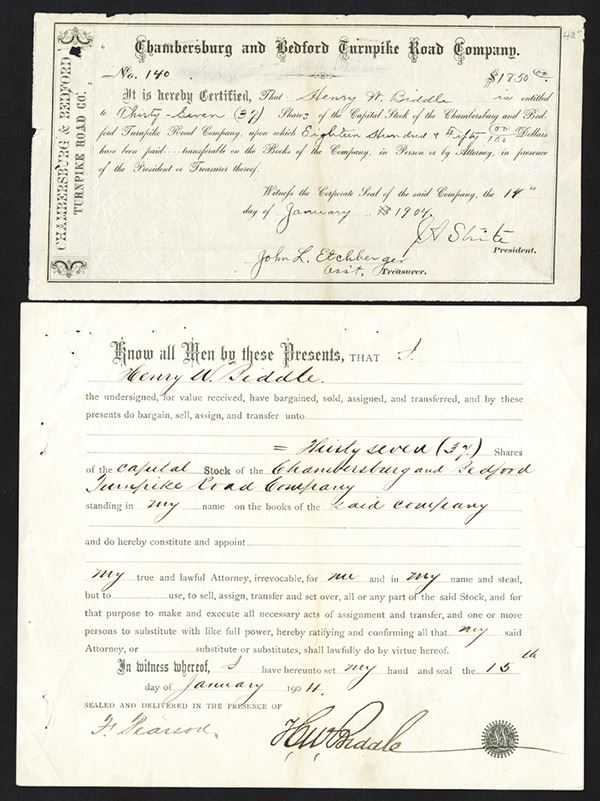 CHAMBERSBURG & BEDFORD
TURNPIKE ROAD CO.
Chambersburg and Bedford Turnpike Road Company.
No. 140 $1850 00
It is hereby Certified, That Henry W. Biddle is entitled
to Thirty-Seven (37) Shares of the Capital Stock of the Chambersburg and Bed-
ford Turnpike Road Company, upon which Eighteen Hundred & Fifty 00/100 Dollars
have been paid---transferable on the Books of the Company, in Person or by Attorney, in presence
of the President or Treasurer thereof.
Witness the Corporate Seal of the said Company, the 14"
day of January 1904
President.
John L. Etchberger
Asst. Treasurer.
Know all Men by these Presents, THAT I.
Henry W. Biddle.
the undersigned, for value received, have bargained, sold, assigned, and transferred, and by these
presents do bargain, sell, assign, and transfer unto
= Thirty seven (37) Shares
of the capital Stock of the Chambersburg and Bedford
Turnpike Road Company
standing in my name on the books of the said company
and do hereby constitute and appoint
my true and lawful Attorney, irrevocable, for me and in my name and stead,
but to use, to sell, assign, transfer and set over, all or any part of the said Stock, and for
that purpose to make and execute all necessary acts of assignment and transfer, and one or more
persons to substitute with like full power, hereby ratifying and confirming all that my said
Attorney, or substitute or substitutes, shall lawfully do by virtue hereof.
In witness whereof, I have hereunto set my hand and seal the 15th
day of January 1904.
SEALED AND DELIVERED IN THE PRESENCE OF
F. Pearson.
H W Biddle